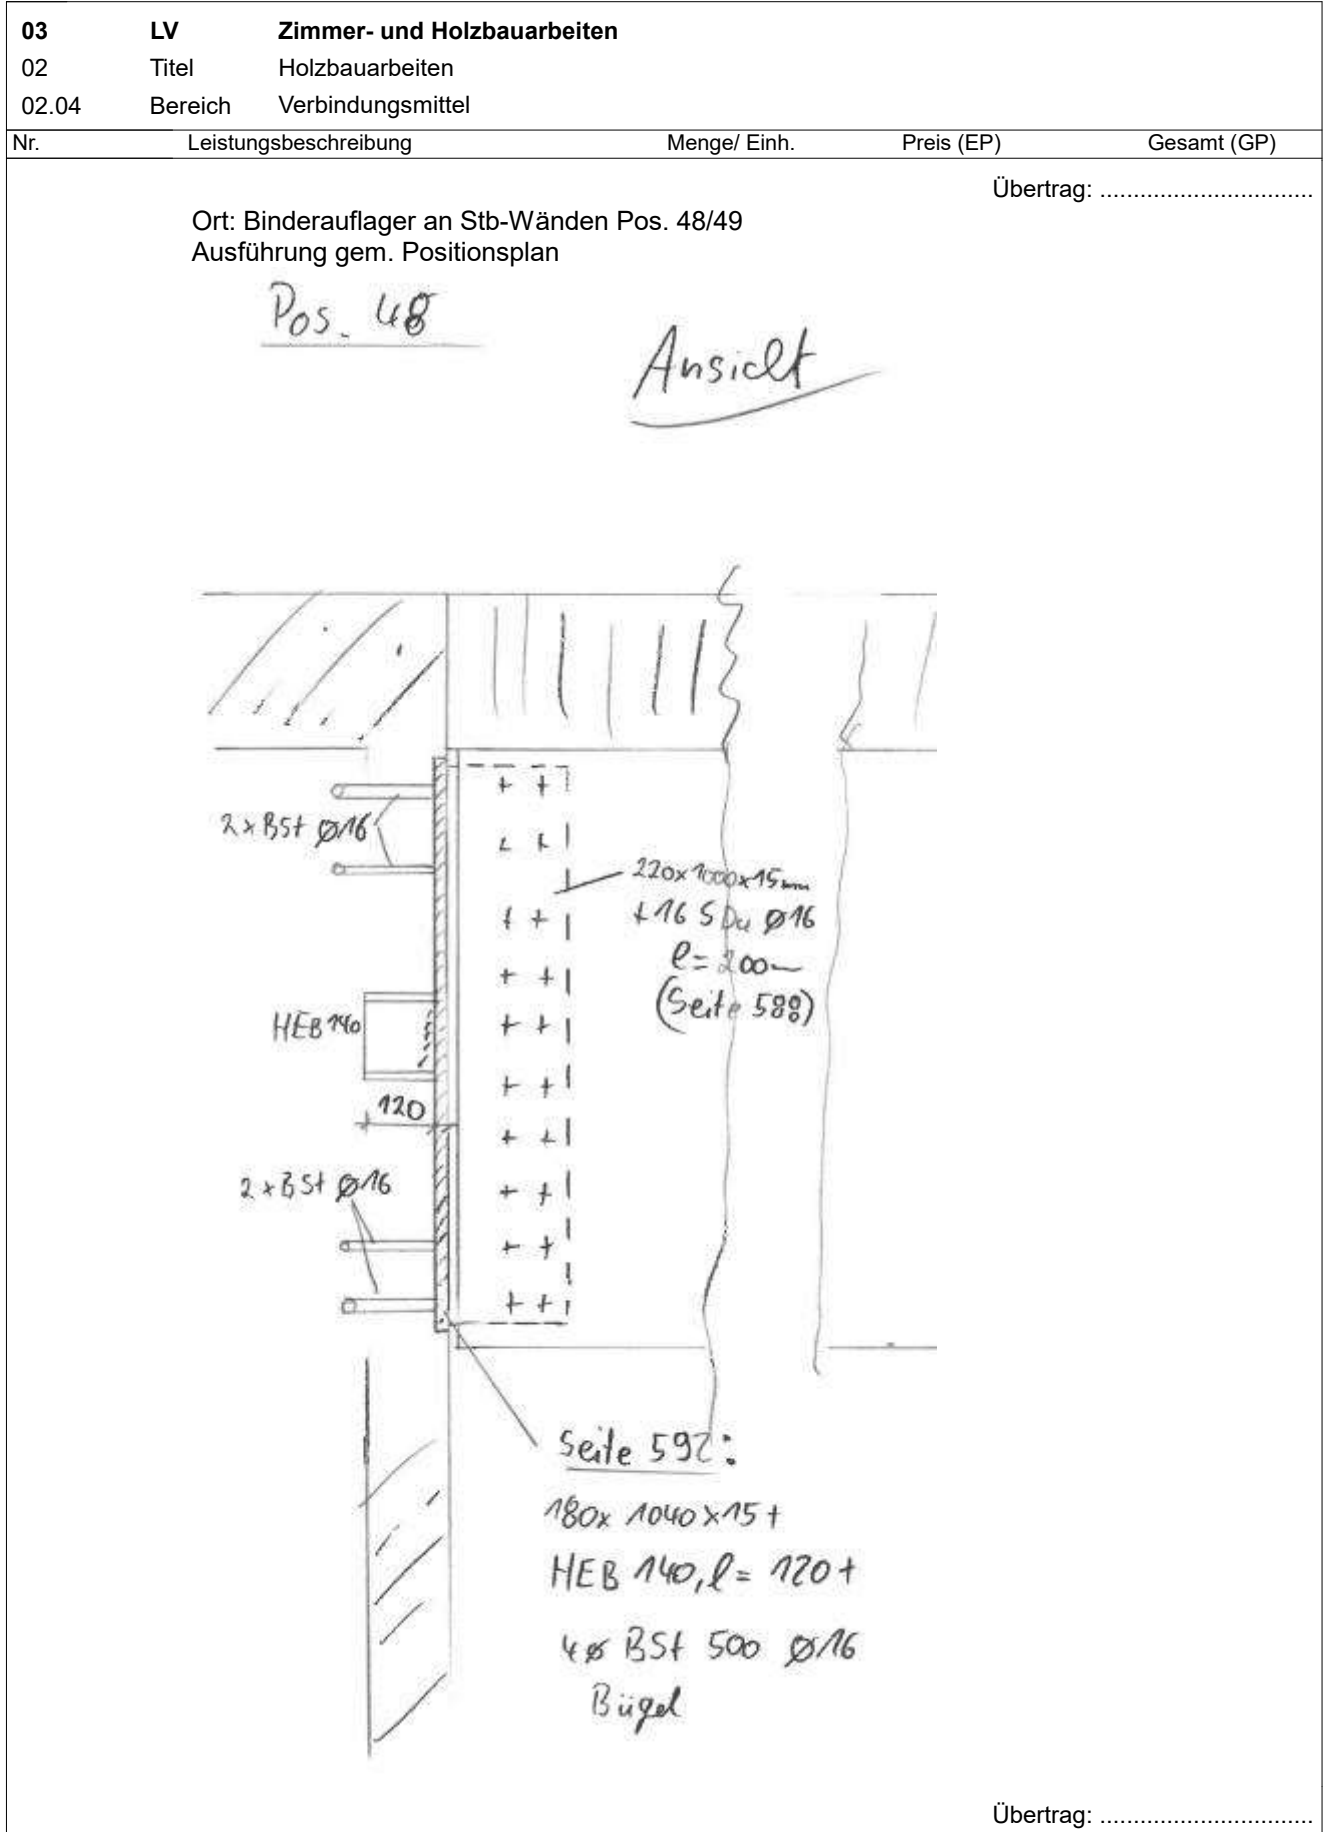 03 LV Zimmer- und Holzbauarbeiten
02 Titel Holzbauarbeiten
02.04 Bereich Verbindungsmittel
Nr. Leistungsbeschreibung Menge/ Einh. Preis (EP) Gesamt (GP)
Übertrag: ................................
Ort: Binderauflager an Stb-Wänden Pos. 48/49
Ausführung gem. Positionsplan
Pos. 48
Ansicht
2 x BSt Ø16
220x1000x15mm
+ 16 SDü Ø16
l = 200mm
(Seite 588)
HEB 140
120
2 x BSt Ø16
Seite 592:
180x 1040 x 15 +
HEB 140, l = 120 +
4 Ø BSt 500 Ø16
Bügel
Übertrag: ................................